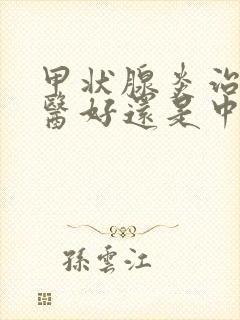 甲状腺炎治
醫好還是中
孫雲江